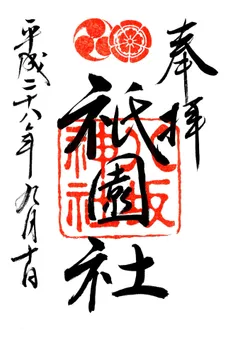 奉拝
祇園社
八坂神社
平成二十八年九月十日